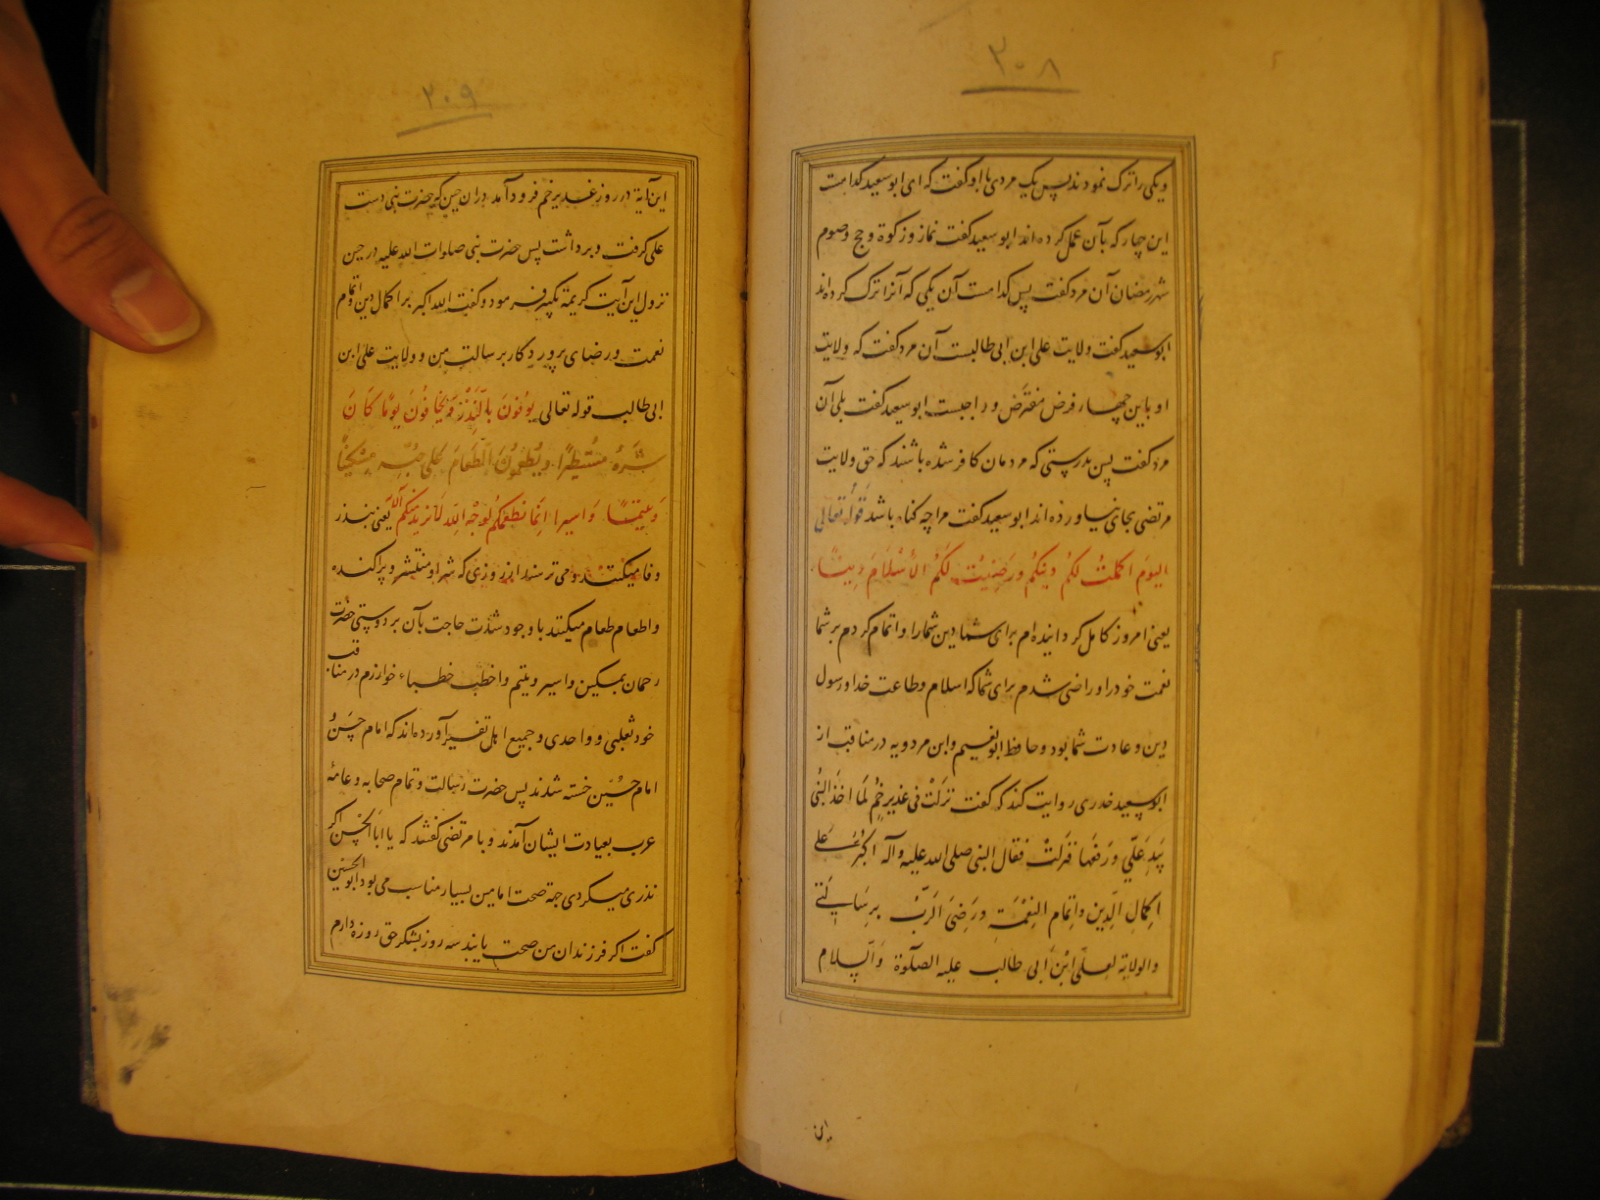 ۳۰۸
ویکی را ترک نمودند پس یک مردی با او گفت که ای ابو سعید کدامست
این چهار که بآن عمل کرده اند ابو سعید گفت نماز و زکوة و حج و صوم
شهر رمضان آن مرد گفت پس کدامست آن یکی که آنرا ترک کرده اند
ابو سعید گفت ولایت علی ابن ابی طالبست آن مرد گفت که ولایت
او باین چهار فرض مفترض و واجبست ابو سعید گفت بلی آن
مرد گفت پس بدرستی که مردمان کافر شده باشند که حق ولایت
مرتضی بجای نیاورده اند ابو سعید گفت مرا چه گناه باشد قوله تعالی
الیوم اکملت لکم دینکم ورضیت لکم الاسلام دینا
یعنی امروز کامل گردانیده ام برای شما دین شما را و اتمام کردم بر شما
نعمت خود را و راضی شدم برای شما که اسلام و طاعت خدا و رسول
دین و عادت شما بود و حافظ ابو نعیم و ابن مردویه در مناقب از
ابو سعید خدری روایت کند که گفت نزلت فی غدیر خم لما اخذ النبی
بید علی و رفعها فنزلت فقال النبی صلی الله علیه وآله الله اکبر علی
اکمال الدین و اتمام النعمة و رضی الرب برسالتی
والولایة لعلی ابن ابی طالب علیه الصلوة والسلام
این
۳۰۹
این آیة در روز غدیر خم فرود آمد در ان حین که حضرت نبی دست
علی گرفت و برداشت پس حضرت نبی صلوات الله علیه در حین
نزول این آیت کریمة تکبیر فرمود و گفت الله اکبر بر اکمال دین و اتمام
نعمت و رضای پروردکار برسالت من و ولایت علی ابن
ابی طالب قوله تعالی یوفون بالنذر ویخافون یوما کان
شره مستطیرا ویطعمون الطعام علی حبه مسکینا
ویتیما واسیرا انما نطعمکم لوجه الله لا نرید منکم الآیة یعنی بنذر
وفا میکنند و می ترسند از روزی که شر او منتشر و پراکنده
و اطعام طعام میکنند با وجود شدت حاجت بآن بر دوستی حضرت
رحمان بمسکین و اسیر و یتیم و اخطب خطباء خوارزم در مناقب
خود ثعلبی و واحدی و جمیع اهل تفسیر آورده اند که امام حسن و
امام حسین خسته شدند پس حضرت رسالت و تمام صحابه و عامۀ
عرب بعیادت ایشان آمدند و با مرتضی گفتند که یا ابا الحسن اگر
نذری میکردی جهة صحت امامین بسیار مناسب می بود ابو الحسنین
گفت اگر فرزندان من صحت یابند سه روز بشکر حق روزه دارم